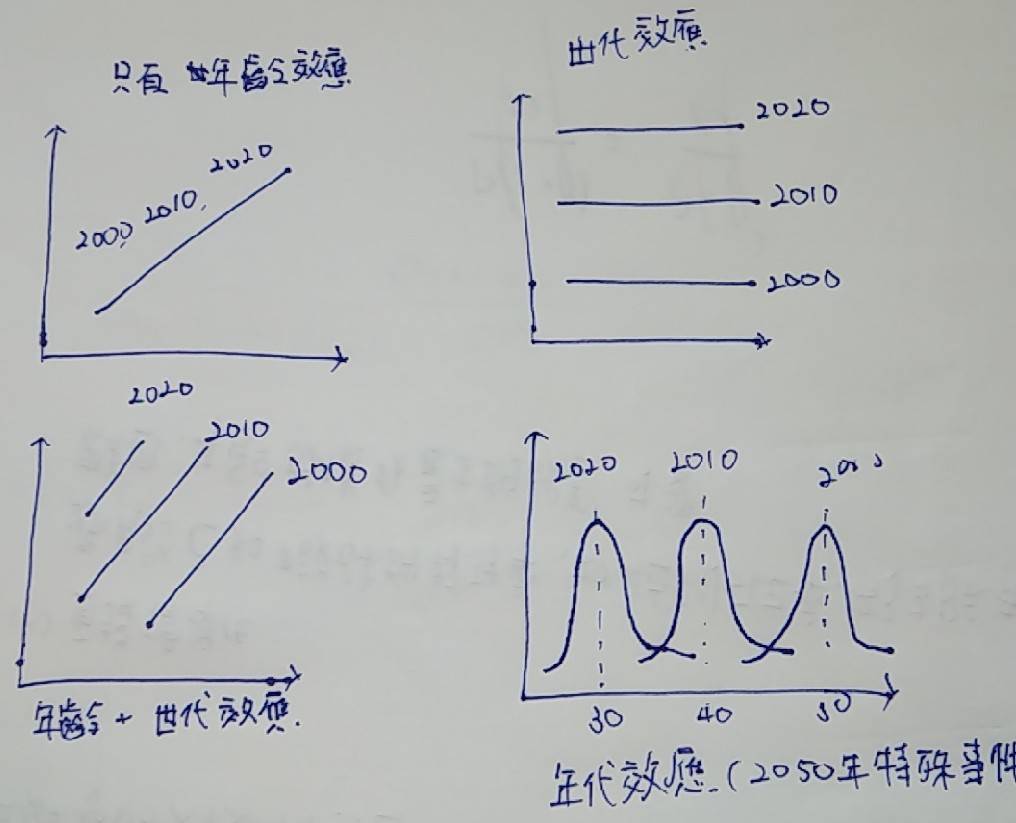 只有年齡效應
2000, 2010, 2020
世代效應
2020
2010
2000
2020
2010
2000
年齡 + 世代效應.
2020 2010 2000
30 40 50
年代效應.(2050年特殊事件